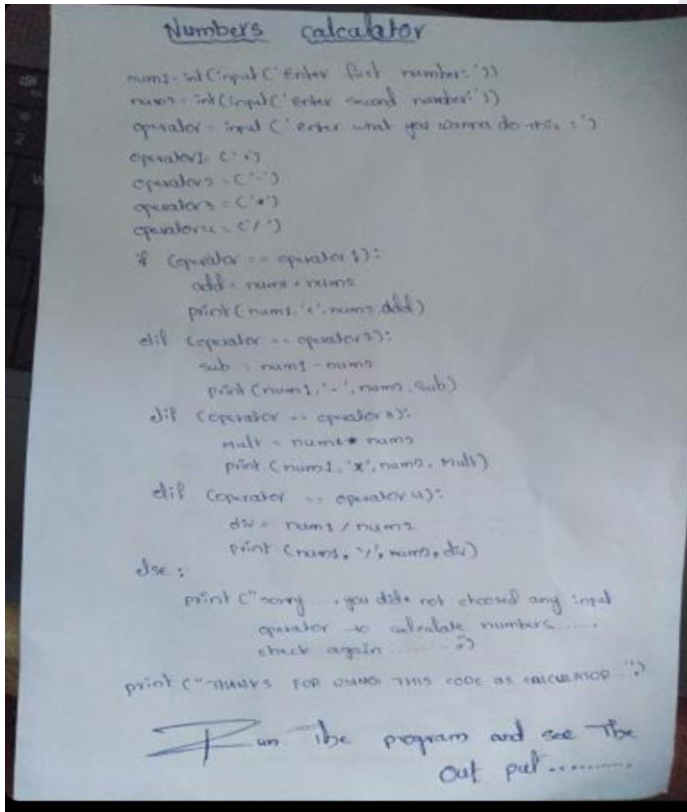 Numbers calculator
num1 = int(input('Enter first number:'))
num2 = int(input('Enter second number:'))
operator = input('enter what you wanna do this :')
operator1 = ('+')
operator2 = ('-')
operator3 = ('*')
operator4 = ('/')
if (operator == operator1):
add = num1 + num2
print(num1,'+',num2,add)
elif (operator == operator2):
sub = num1 - num2
print(num1,'-',num2,sub)
elif (operator == operator3):
Mult = num1 * num2
print(num1,'x',num2,Mult)
elif (operator == operator4):
div = num1 / num2
print(num1,'/',num2,div)
else:
print("sorry...you did not choosed any input
operator to calculate numbers.....
check again.......")
print("THANKS FOR USING THIS CODE AS CALCULATOR...")
Run the program and see The
Out put..........